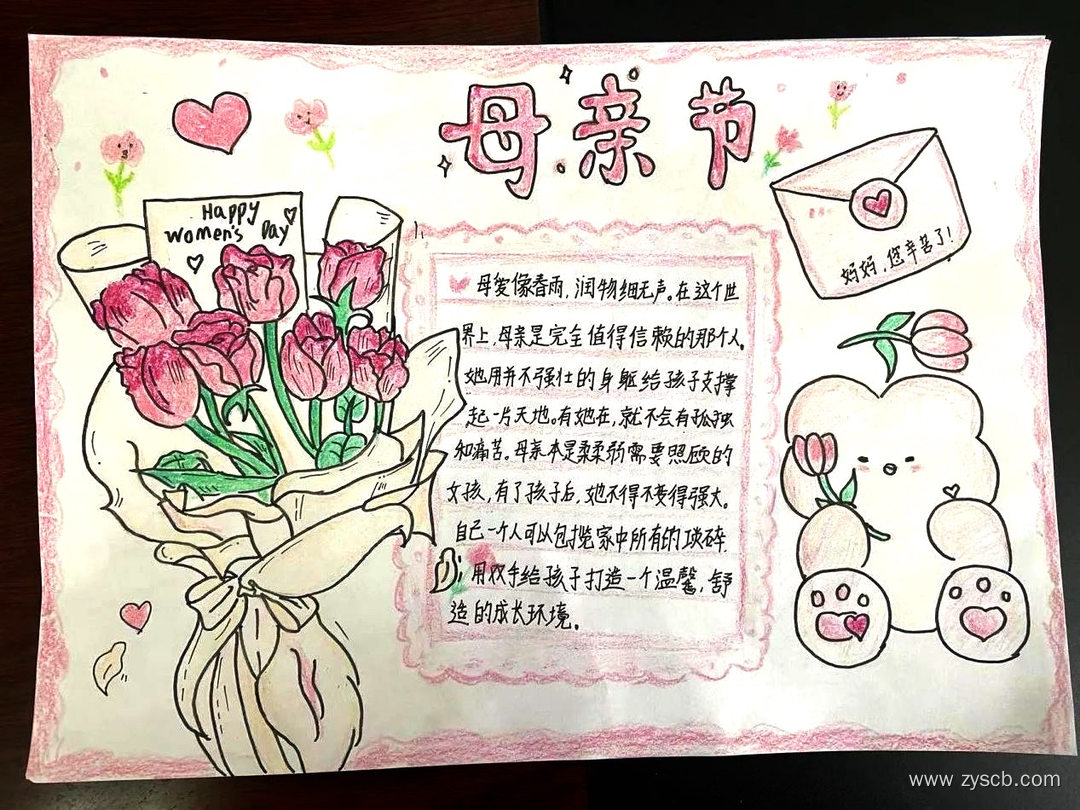 母亲节
Happy
Women's Day
妈妈，您辛苦了！
母爱像春雨，润物细无声。在这个世
界上，母亲是完全值得信赖的那个人。
她用并不强壮的身躯给孩子支撑
起一片天地。有她在，就不会有孤独
和痛苦。母亲本是柔柔弱需要照顾的
女孩，有了孩子后，她不得不变得强大。
自己一个人可以包揽家中所有的琐碎，
用双手给孩子打造一个温馨，舒
造的成长环境。
www.zyscb.com